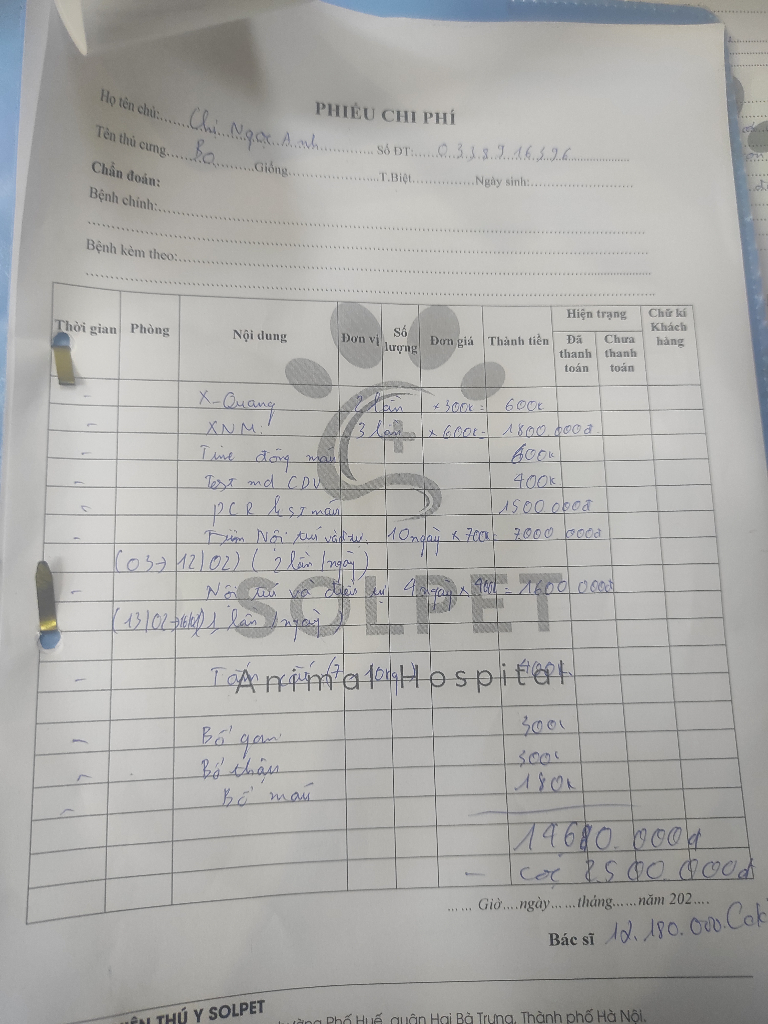 PHIẾU CHI PHÍ
Họ tên chủ: Chị Ngọc Anh Số ĐT: 0338916596
Tên thú cưng Bo Giống T.Biệt Ngày sinh:
Chẩn đoán:
Bệnh chính:
Bệnh kèm theo:
Thời gian Phòng Nội dung Đơn vị Số lượng Đơn giá Thành tiền Hiện trạng Đã thanh toán Chưa thanh toán Chữ kí Khách hàng
- X-Quang 2 lần x 300k = 600k
- XNM: 3 lần x 600k = 1800.000đ
- Time đông máu 600k
- Test md CDV 400k
- PCR máu 1500.000đ
- Nội trú 10 ngày x 700k 7000 000đ
(03 → 12/02) (2 lần/ngày)
- Nội trú và điều trị 4 ngày x 400k = 1600 000đ
(13/02 → 16/02) 1 lần/ngày)
- 400k
SOLPET
Animal Hospital
- Bổ gan 300k
- Bổ thận 300k
- Bổ máu 180k
14680.000đ
- cọc 2500.000đ
Giờ....ngày......tháng......năm 202....
Bác sĩ 12.180.000.
VIỆN THÚ Y SOLPET
đường Phố Huế, quận Hai Bà Trưng, Thành phố Hà Nội.